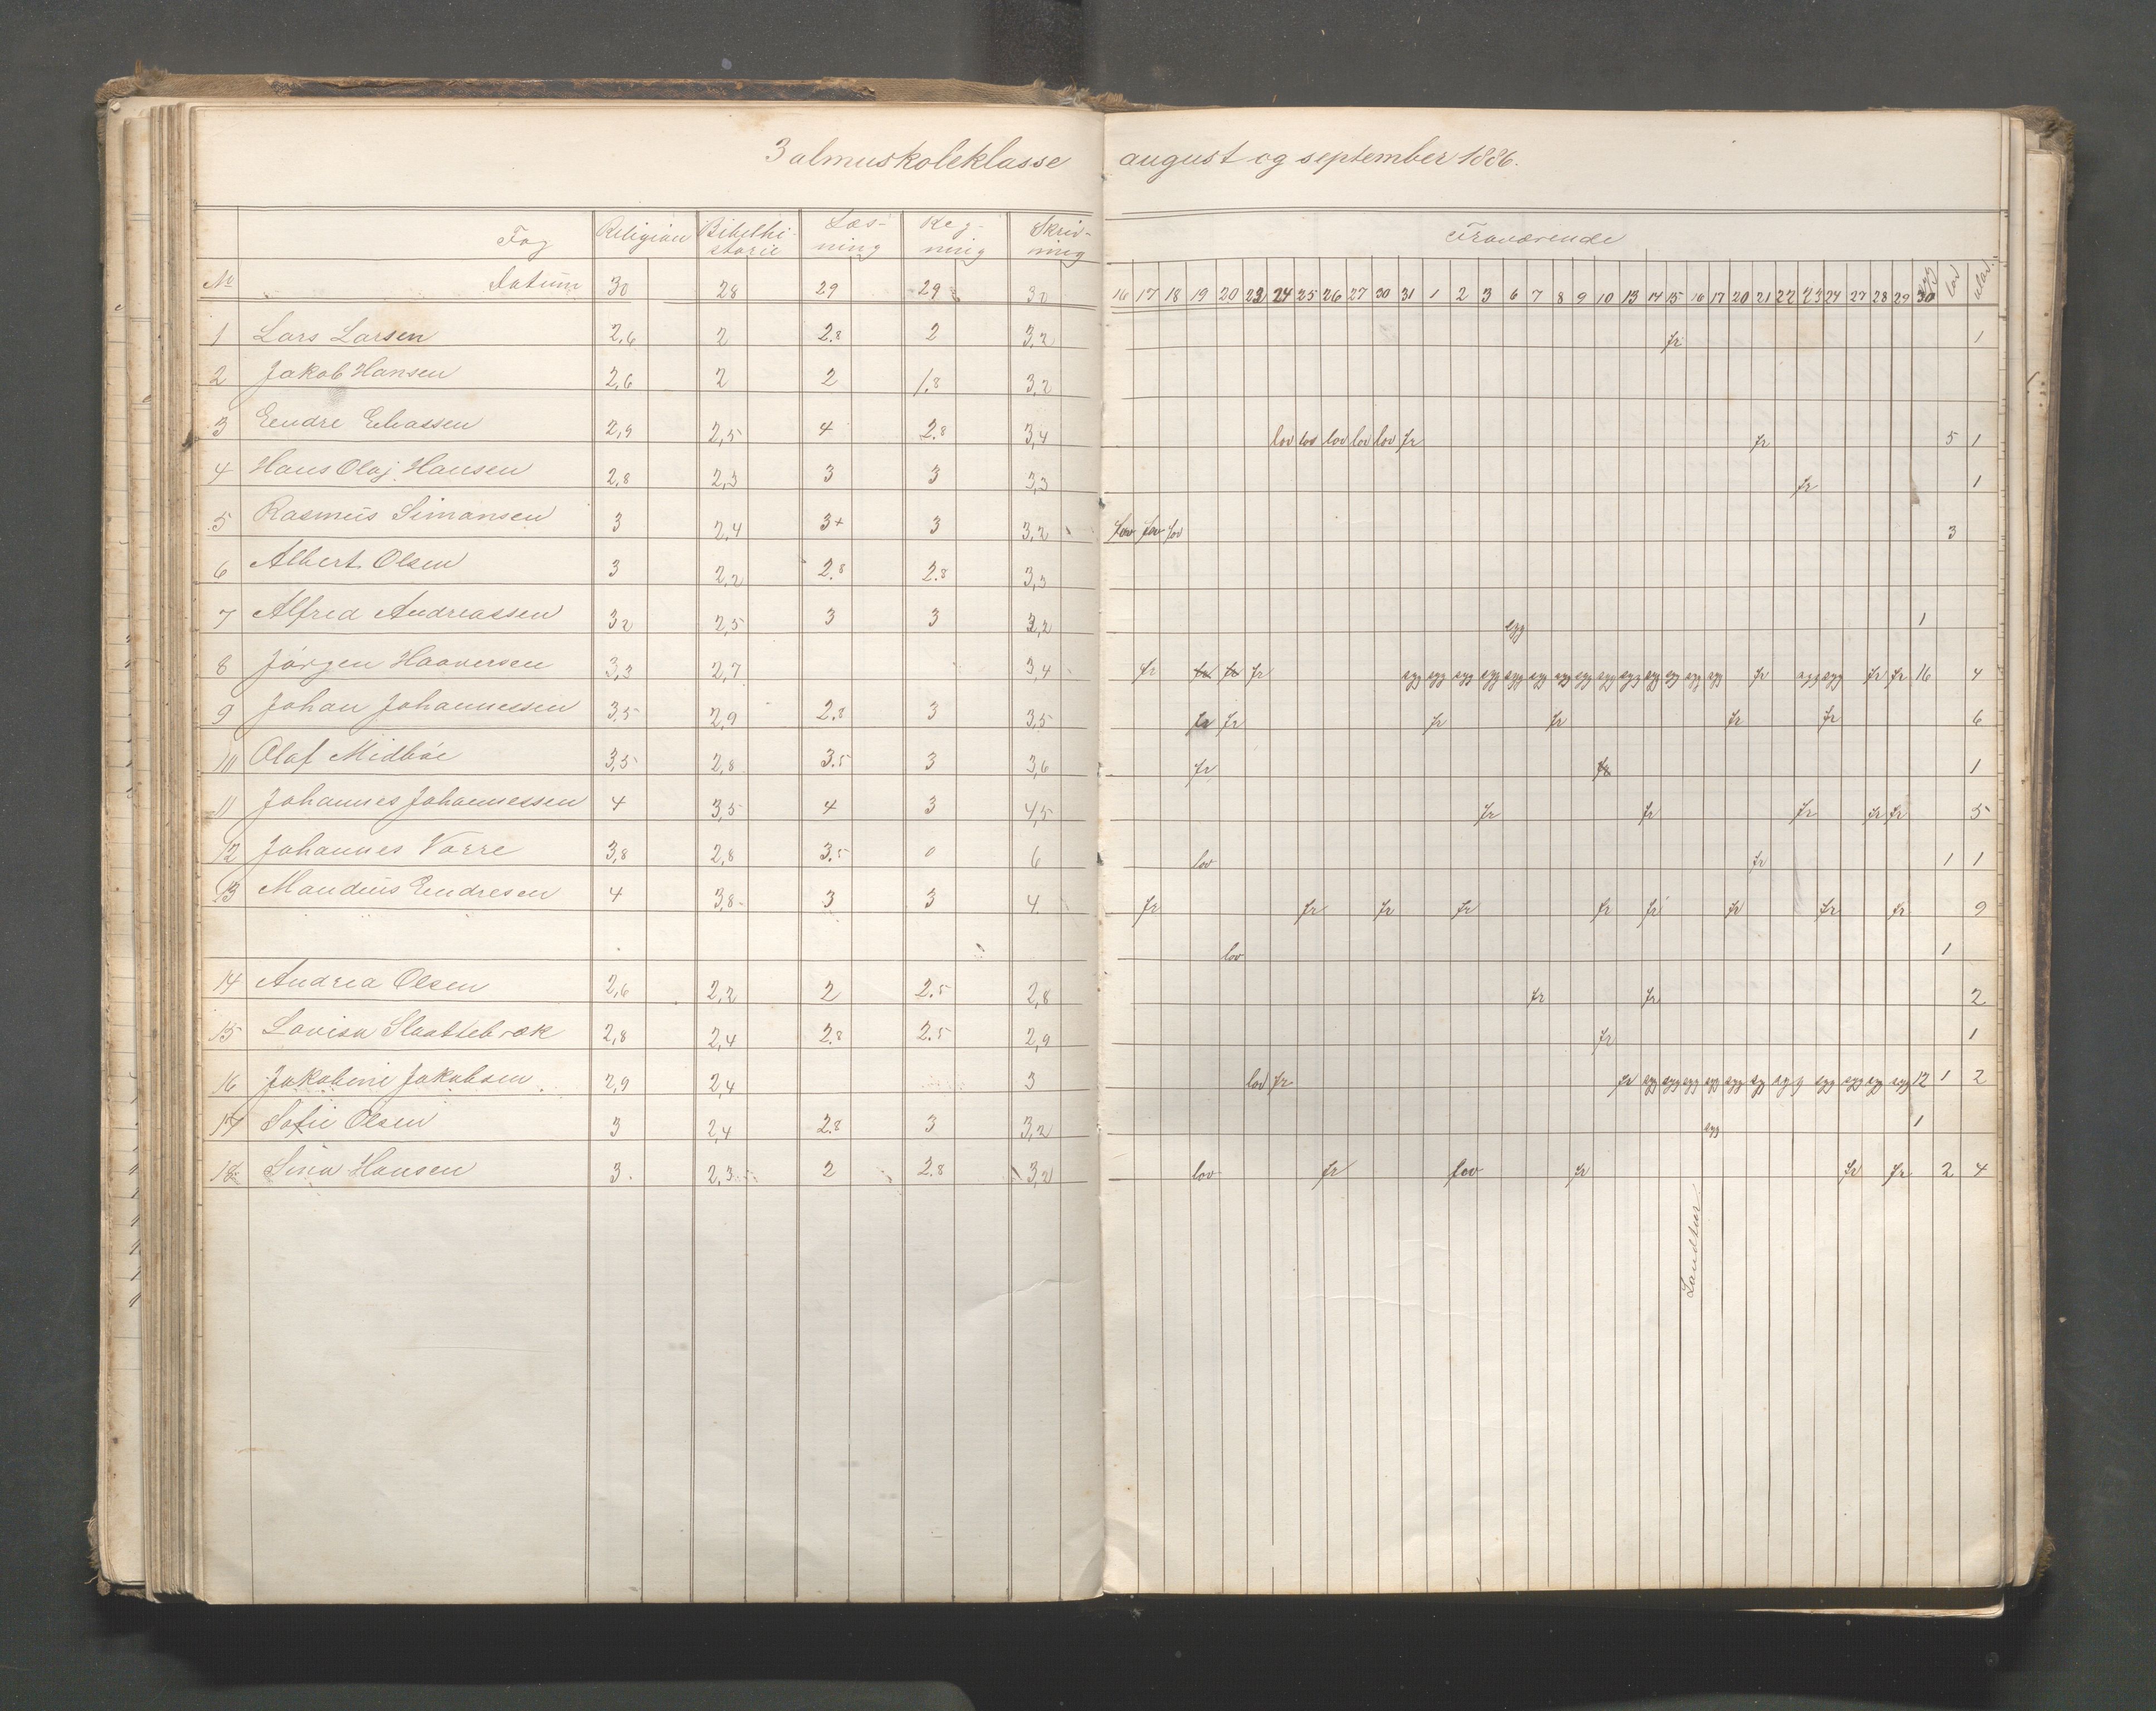 3 almuskoleklasse august og september 1886.
Fag Religion Bibelhi- Læs- Reg- Skriv- Fraværende
storie ning ning ning
No Datum 30 28 29 29 30 16 17 18 19 20 23 24 25 26 27 30 31 1 2 3 6 7 8 9 10 13 14 15 16 17 20 21 22 23 24 27 28 29 30 syg lov ulov.
1 Lars Larsen 2,6 2 2.8 2 3,2 fr 1
2 Jakob Hansen 2,6 2 2 1.8 3,2
3 Endre Eliassen 2,9 2,5 4 2.8 3,4 lov lov lov lov lov fr fr 5 1
4 Hans Olaj Hansen 2,8 2,3 3 3 3,3 fr 1
5 Rasmus Simonsen 3 2,4 3+ 3 3,2 lov lov lov 3
6 Albert Olsen 3 2,2 2.8 2.8 3,3
7 Alfred Andreassen 32 2,5 3 3 3,2 syg 1
8 Jörgen Haaversen 3,3 2,7 3,4 fr fr fr fr syg syg syg syg syg syg syg syg syg syg syg syg syg syg fr syg syg fr fr 16 4
9 Johan Johannessen 3,5 2,9 2.8 3 3,5 fr fr fr fr fr fr 6
10 Olaf Midböe 3,5 2,8 3.5 3 3,6 fr fr 1
11 Johannes Johannessen 4 3,5 4 3 4,5 fr fr fr fr fr 5
12 Johannes Vorre 3,8 2,8 3.5 0 6 lov fr 1 1
13 Mandius Endresen 4 3,8 3 3 4 fr fr fr fr fr fr fr fr fr 9
lov 1
14 Andrea Olsen 2,6 2,2 2 2.5 2,8 fr fr 2
15 Lovisa Slaattebræk 2,8 2,4 2.8 2.5 2,9 fr 1
16 Jakobine Jakobsen 2,9 2,4 3 lov fr fr syg syg syg syg syg syg syg syg syg syg syg 12 1 2
17 Sofie Olsen 3 2,4 2.8 3 3,2 syg 1
18 Sina Hansen 3 2,3 2 2.8 3,2 lov fr lov fr fr fr 2 4
Landtur